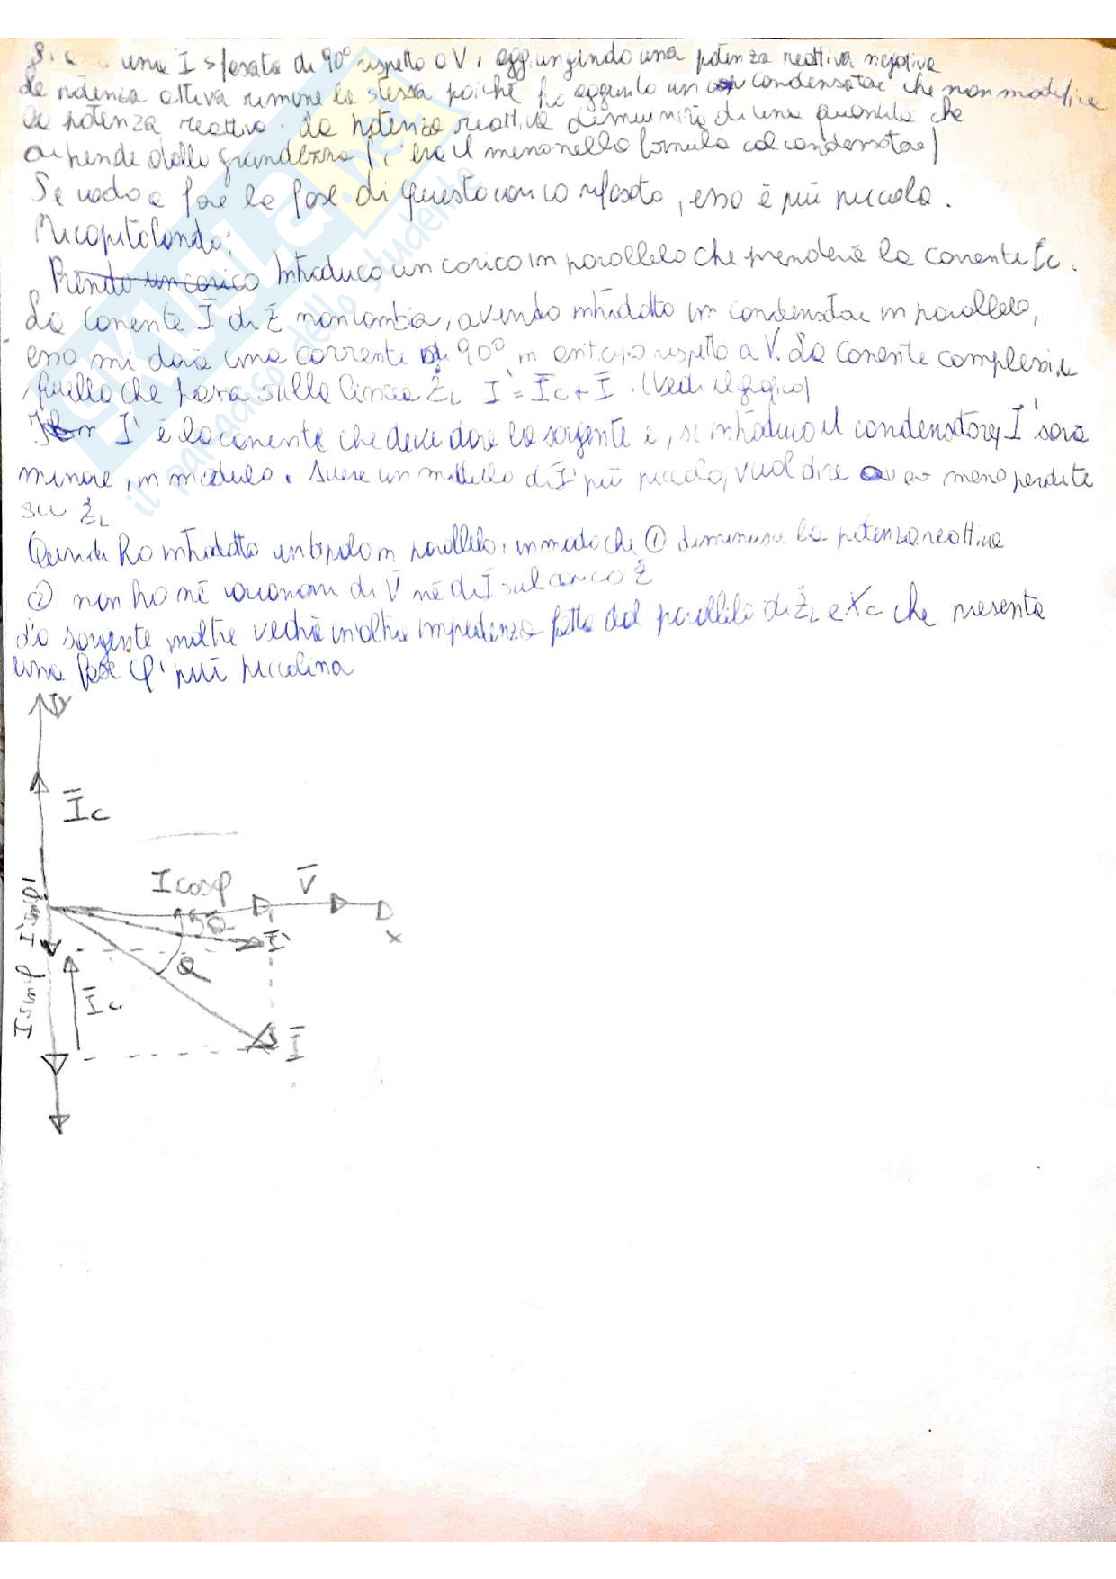 una I sfasata di 90° rispetto a V, aggiungendo una potenza reattiva negativa
La potenza attiva rimane la stessa poiché ho aggiunto un condensatore che non modifica
la potenza reattiva. La potenza reattiva diminuirà di una quantità che
dipende dalla grandezza (, era il meno nella formula col condensatore)
Se vado a fare la fase di questo carico rifasato, esso è più piccolo.
Ricapitolando:
Prendo un carico Introduco un carico in parallelo che prenderà la corrente Ic.
La corrente I̅ di Ż non cambia, avendo introdotto un condensatore in parallelo,
esso mi darà una corrente di 90° in anticipo rispetto a V. La corrente complessiva
quella che passa sulla linea ŻL I' = I̅c + I̅. (Vedi il grafico)
I' è la corrente che deve dare la sorgente e, se introduco il condensatore, I' sarà
minore, in modulo. Avere un modulo di I' più piccolo, vuol dire avere meno perdite
su ŻL
Quindi ho introdotto un bipolo in parallelo, in modo che ① diminuisse la potenza reattiva
② non ho né variazioni di V̅ né di I̅ sul carico Ż
La sorgente inoltre vedrà un'altra impedenza fatta dal parallelo di ŻL e Xc che presenta
una fase φ' più piccolina
I̅c
I cosφ
V̅
x
I'
I̅
I̅c
I'sinφ'
I sinφ